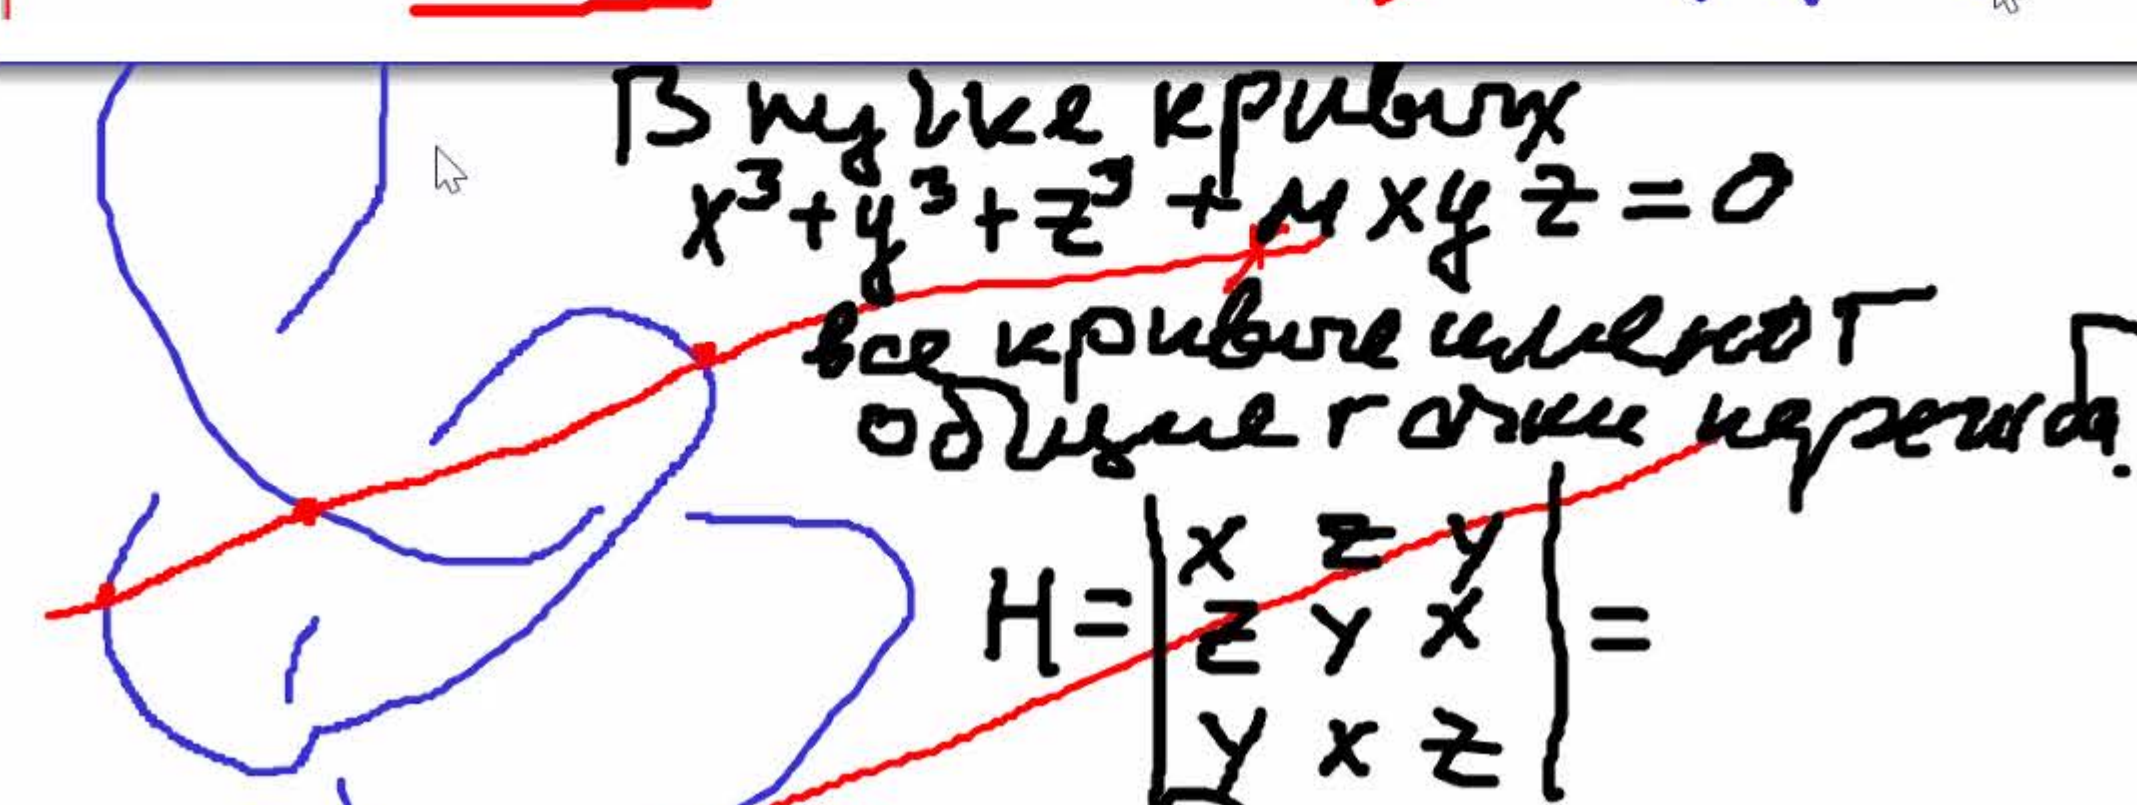 В пучке кривых
x³+y³+z³+μxyz=0
все кривые имеют
общие точки перегиба.
H=|x z y|
|z y x|=
|y x z|